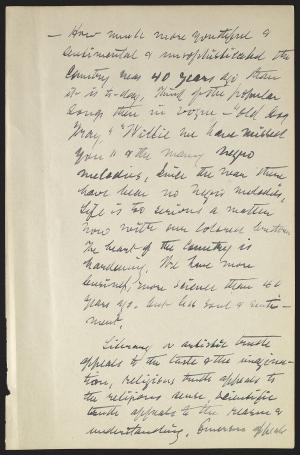 — How much more youthful &
sentimental & unsophisticated the
Country was 40 years ago than
it is to-day, think of the popular
songs then in vogue — "Old Dog
Tray," & "Willie we have missed
you" & the many negro
melodies, since the war there
have been no negro melodies,
Life is too serious a matter
now with our colored brothers.
The heart of the country is
hardening. We have more
science than 40
years ago, but less soul & senti-
ment.
Literary or artistic truth
appeals to the taste & the imagina-
tion, religious truth appeals to
the religious sense, scientific
truth appeals to the reason &
understanding. Emerson appeals